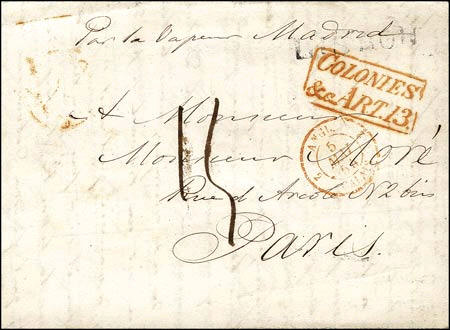 Par la Vapeur Madrid
LISBON
COLONIES
&c. ART. 13.
A Monsieur
Monsieur Moré
15
Rue d'Arcole N 2 bis
Paris.